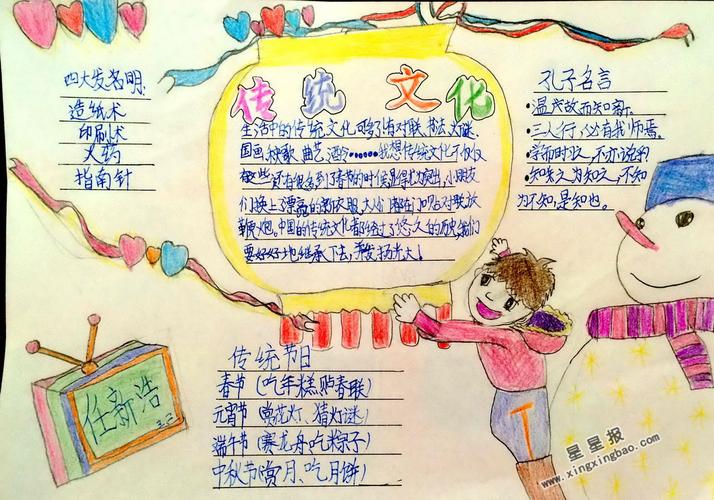 传统文化
生活中的传统文化可多啦有对联、书法、灯谜、
国画、秧歌、曲艺、酒令……我想传统文化不仅仅
有这些还有很多到了春节的时候显得尤为突出,小朋友
们换上了漂亮的新衣服,大人们都在门口贴对联放
鞭炮。中国的传统文化都经过了悠久的历史,我们
要好好地继承下去,并发扬光大!
四大发名明:
造纸术
印刷术
火药
指南针
孔子名言
·温故而知新。
·三人行,必有我师焉。
·学而时习之,不亦说乎?
·知之为知之,不知
为不知,是知也。
传统节日
春节(吃年糕,贴春联)
元宵节(赏花灯、猜灯谜)
端午节(赛龙舟,吃粽子)
中秋节(赏月、吃月饼)
任新浩
三.2
T
星星报
www.xingxingbao.com